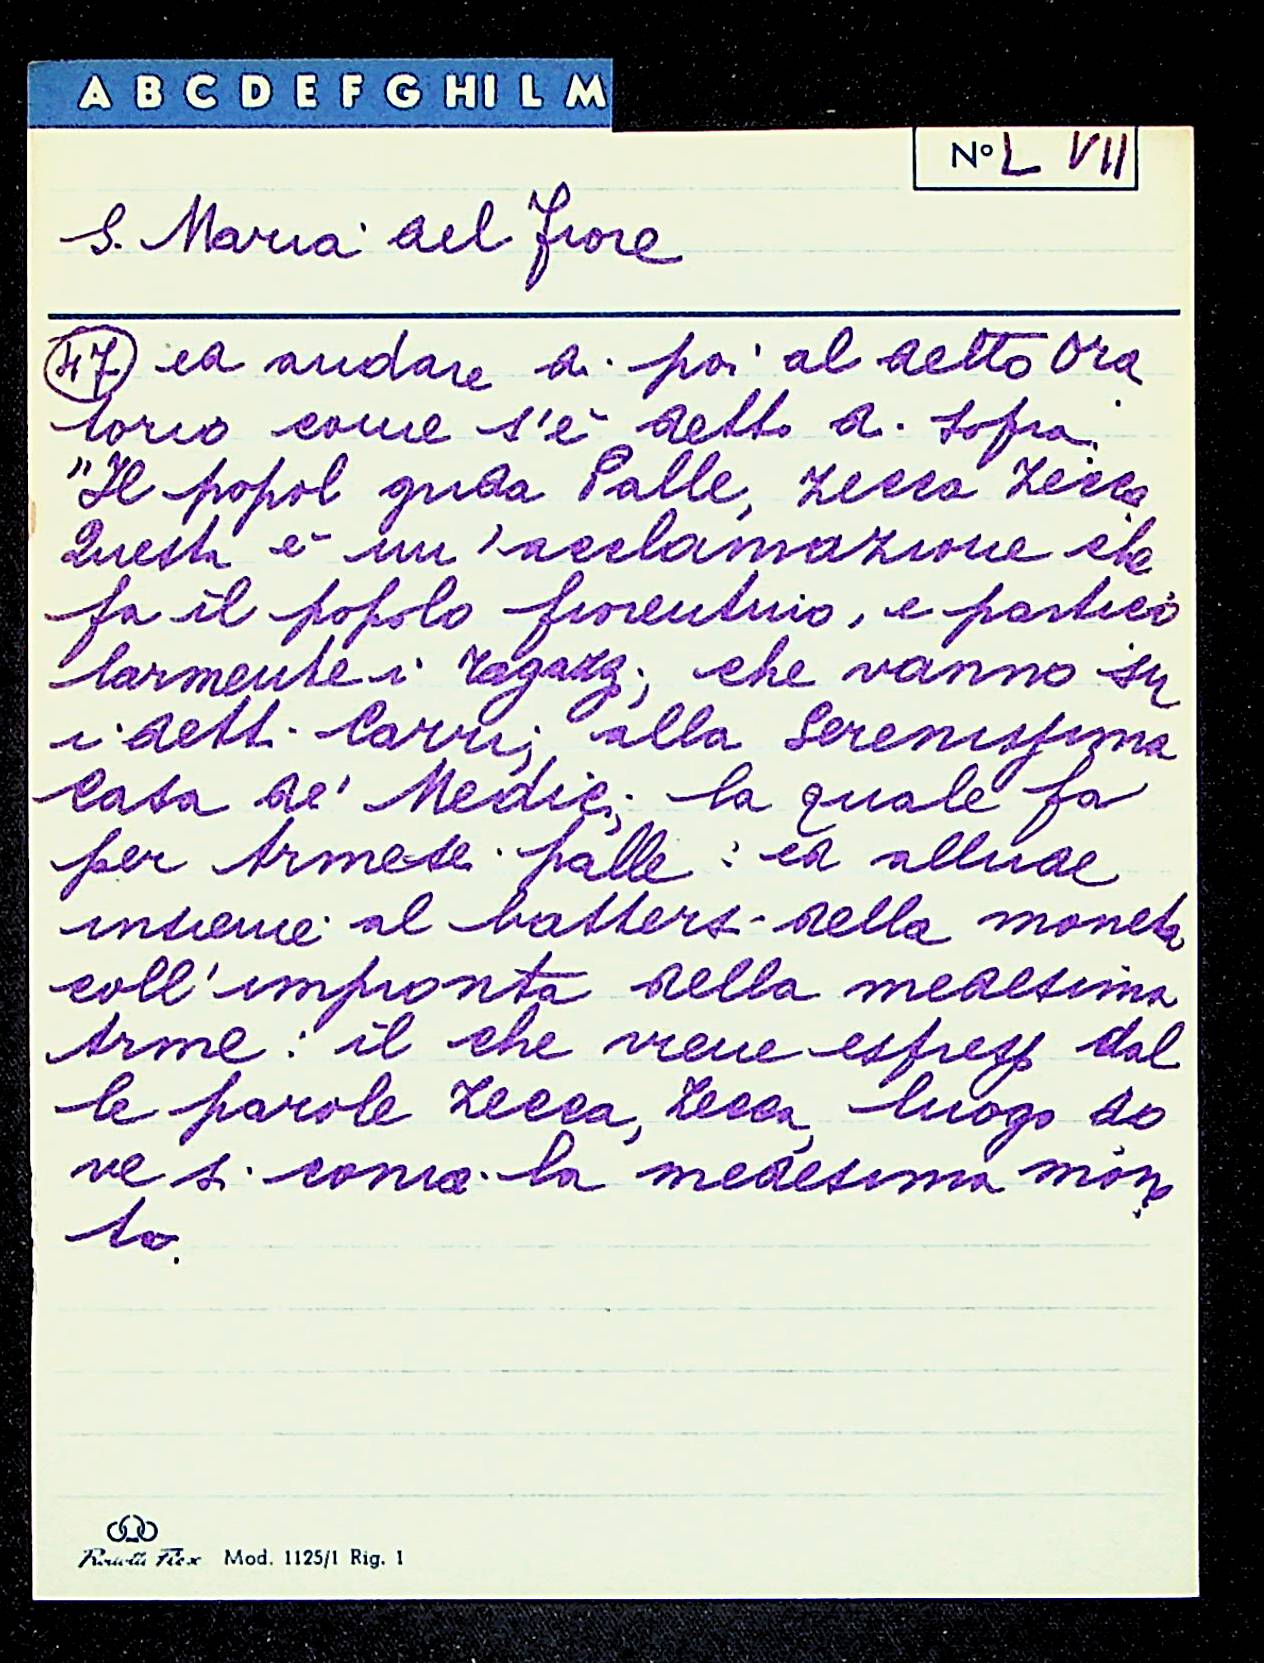 A B C D E F G H I L M
Nº L VII
S. Maria del Fiore
47 ed andare di poi al detto Ora
torio come s'è detto di sopra.
"Il popol grida Palle, Zecca Zecca
Questa è un'acclamazione che
fa il popolo fiorentino, e partico
larmente i ragazzi, che vanno su
i detti Carri; alla Serenissima
Casa de' Medici; la quale fa
per Arme sei palle: ed allude
insieme al battersi della moneta
coll'impronta della medesima
Arme: il che viene espresso dal
le parole Zecca, Zecca, luogo do
ve si conia la medesima mone
ta.
Mod. 1125/1 Rig. 1